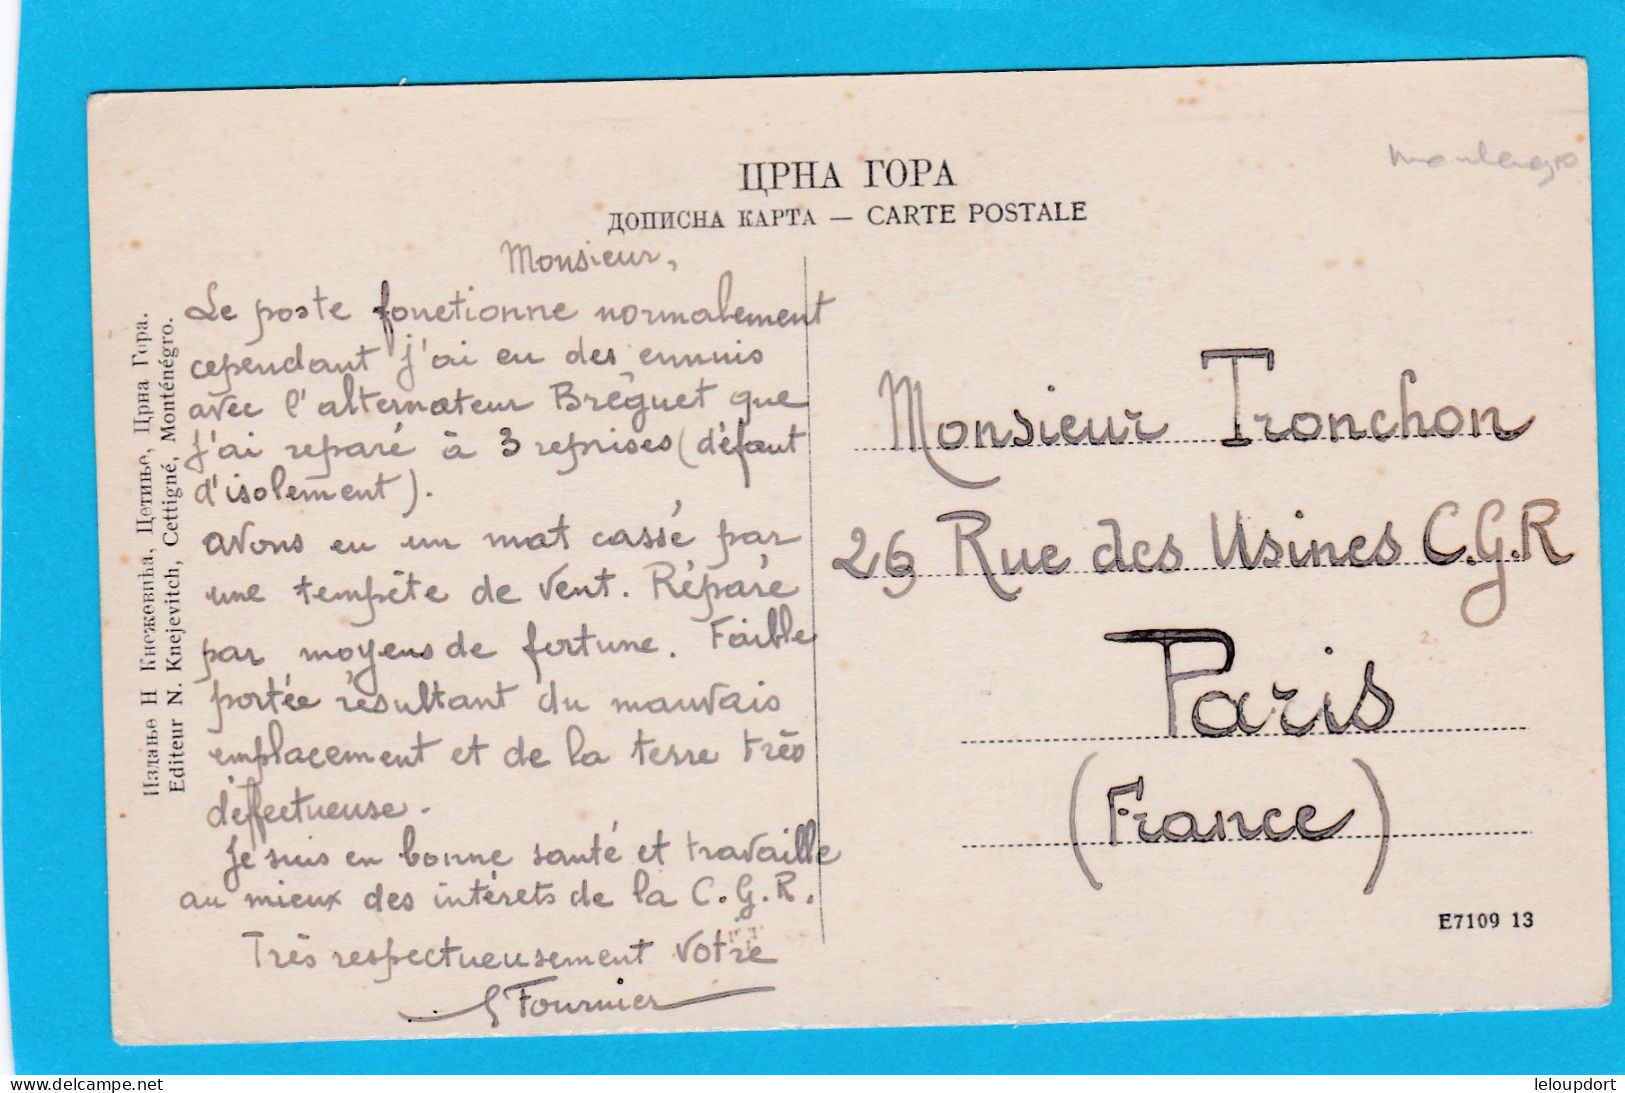 ЦРНА ГОРА
ДОПИСНА КАРТА — CARTE POSTALE
Montenegro
Издање Н Кнежевића, Цетиње, Црна Гора.
Editeur N. Knejevitch, Cettigné, Monténégro.
Monsieur,
Le poste fonctionne normalement
cependant j'ai eu des ennuis
avec l'alternateur Bréguet que
j'ai reparé à 3 reprises (défaut
d'isolement).
avons eu un mat cassé par
une tempête de vent. Réparé
par moyens de fortune. Faible
portée résultant du mauvais
emplacement et de la terre très
deffectueuse.
Je suis en bonne santé et travaille
au mieux des intérets de la C.G.R.
Très respectueusement Votre
Fournier
Monsieur Tronchon
26 Rue des Usines C.G.R
Paris
(France)
E7109 13
leloupdort
delcampe.net